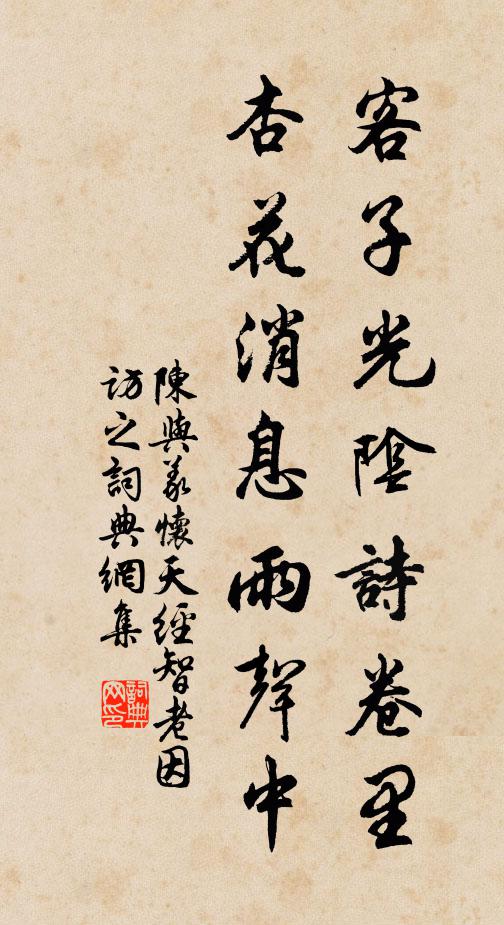 客子光陰詩卷里
杏花消息雨聲中
陳與義懷天經智老因
訪之詞典網集
詞典网印